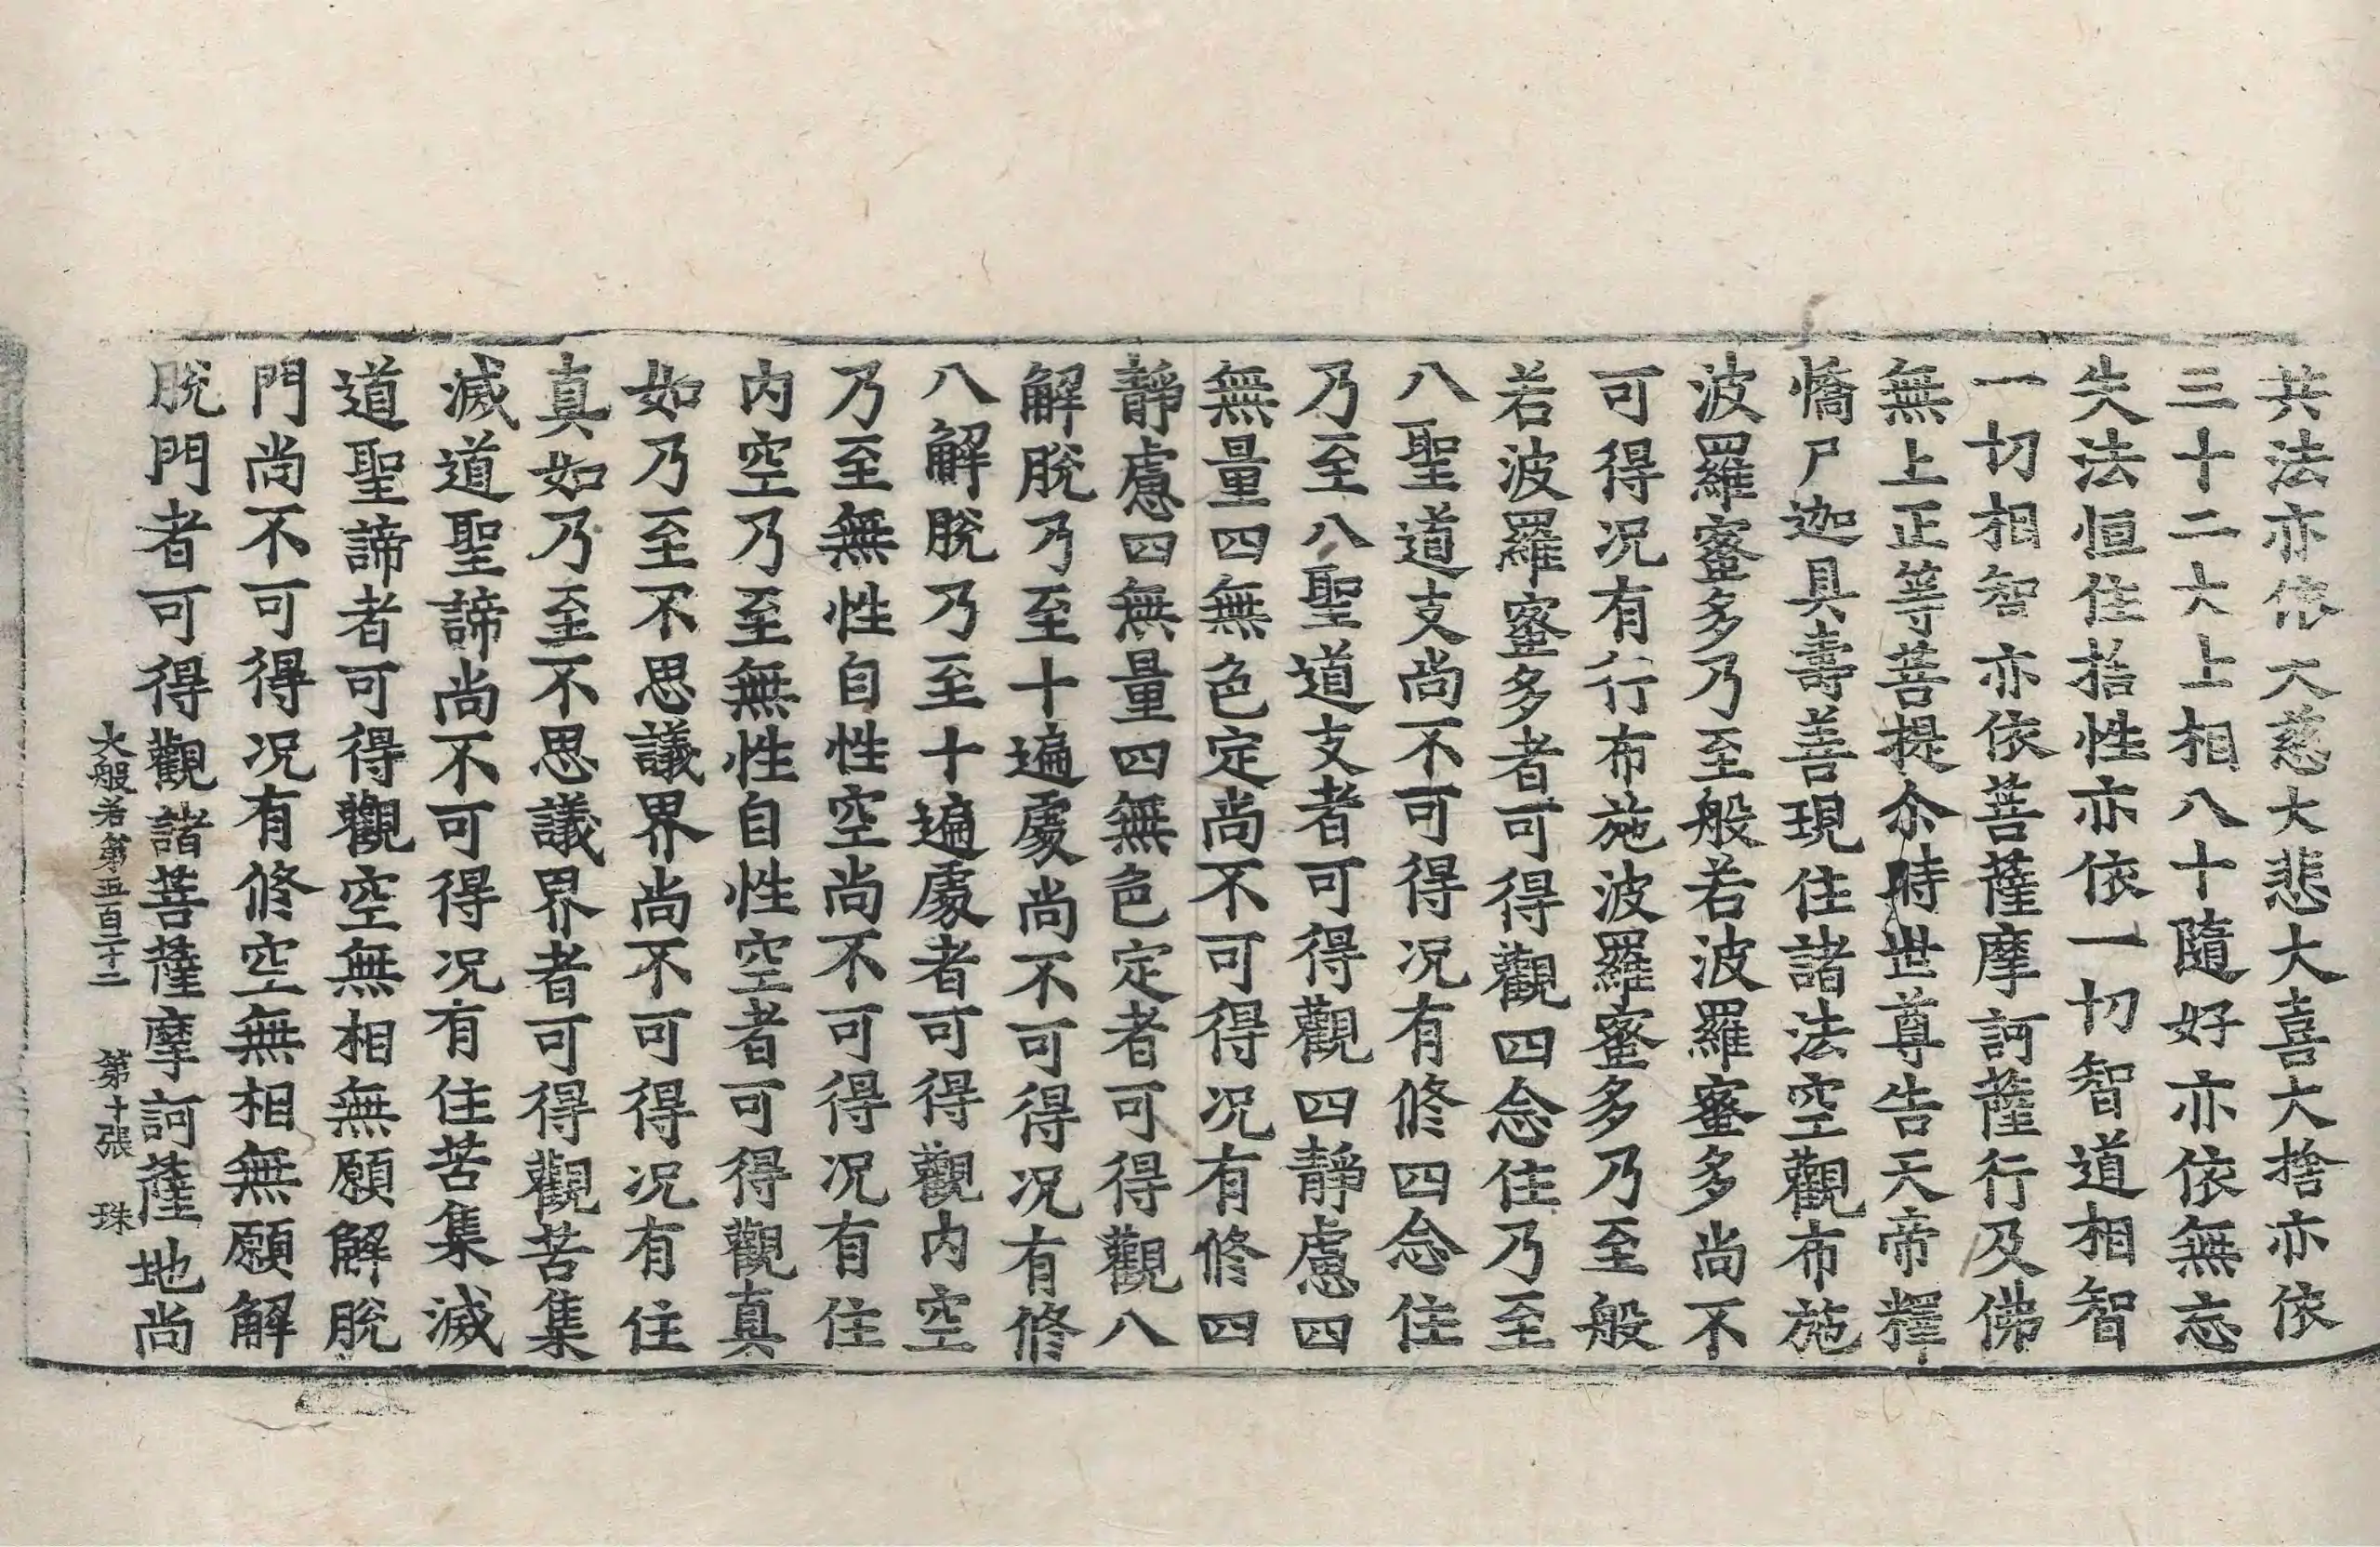 共法亦依大慈大悲大喜大捨亦依
三十二大上相八十隨好亦依無忘
失法恒住捨性亦依一切智道相智
一切相智亦依菩薩摩訶薩行及佛
無上正等菩提尒時世尊告天帝釋
憍尸迦具壽善現住諸法空觀布施
波羅蜜多乃至般若波羅蜜多尚不
可得况有行布施波羅蜜多乃至般
若波羅蜜多者可得觀四念住乃至
八聖道支尚不可得况有修四念住
乃至八聖道支者可得觀四靜慮四
無量四無色定尚不可得况有修四
靜慮四無量四無色定者可得觀八
解脫乃至十遍處尚不可得况有修
八解脫乃至十遍處者可得觀内空
乃至無性自性空尚不可得况有住
内空乃至無性自性空者可得觀真
如乃至不思議界尚不可得况有住
真如乃至不思議界者可得觀苦集
滅道聖諦尚不可得况有住苦集滅
道聖諦者可得觀空無相無願解脫
門尚不可得况有修空無相無願解
脫門者可得觀諸菩薩摩訶薩地尚
大般若第五百二十二　第十張　珠